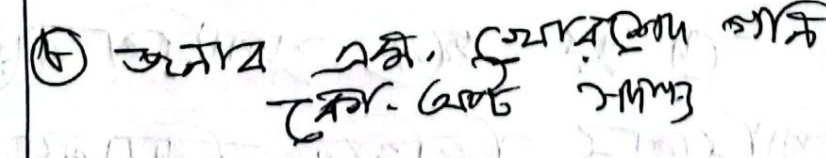 ৮ জনাব এম. খোরশেদ আলি
কো-অপ্ট সদস্য